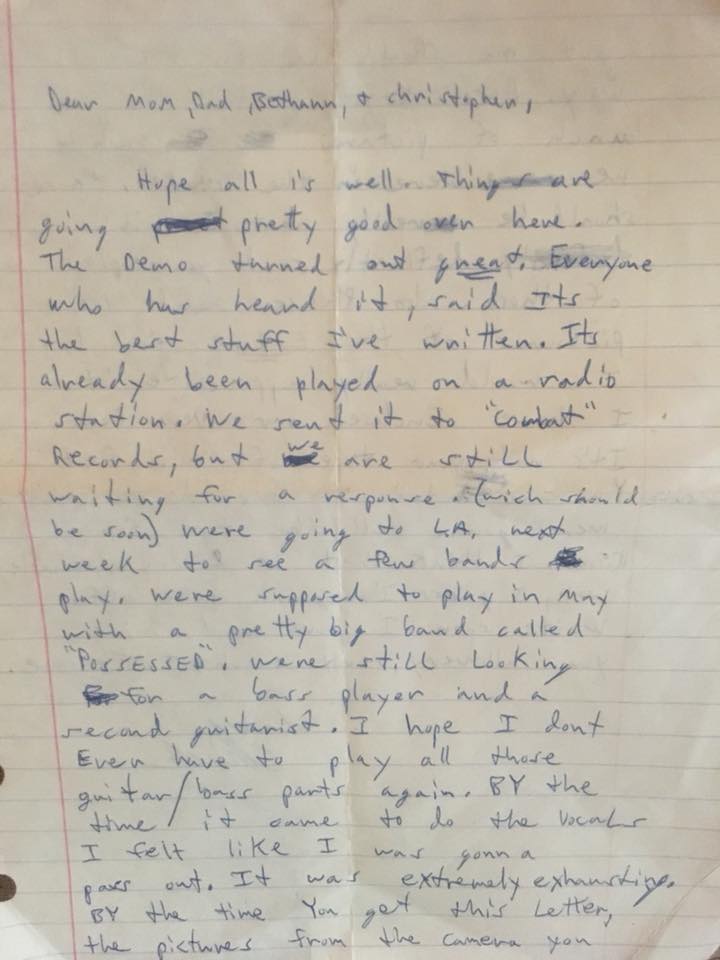 Dear Mom, Dad, Bethann, & christophen,
Hope all is well. Things are
going pretty good over here.
The Demo turned out great. Everyone
who has heard it, said Its
the best stuff I've written. Its
already been played on a radio
station. We sent it to "Combat"
Records, but we are still
waiting for a response. (wich should
be soon) were going to L.A. next
week to see a few bands
play. were supposed to play in May
with a pretty big band called
"POSSESSED". were still Looking
for a bass player and a
second guitarist. I hope I dont
Ever have to play all those
guitar/bass parts again. BY the
time it came to do the vocals
I felt like I was gonna
pass out. It was extremely exhausting.
BY the time You get this Letter,
the pictures from the camera you